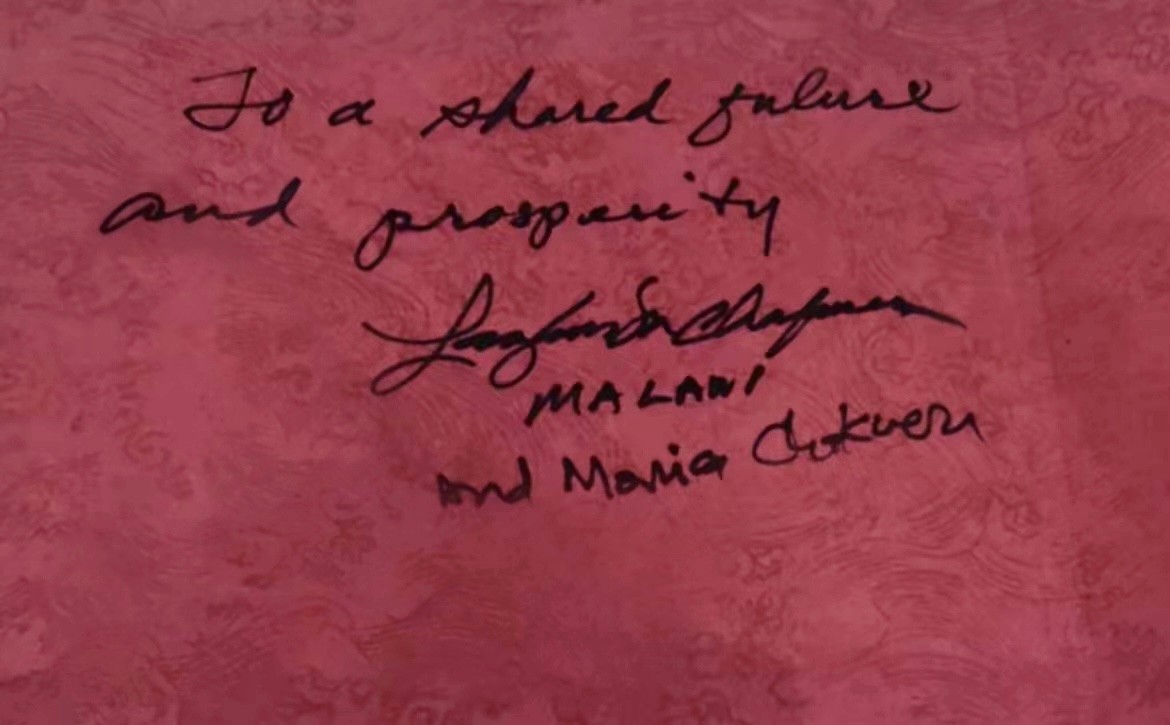 To a shared future
and prosperity
Chapman
MALAWI
and Maria